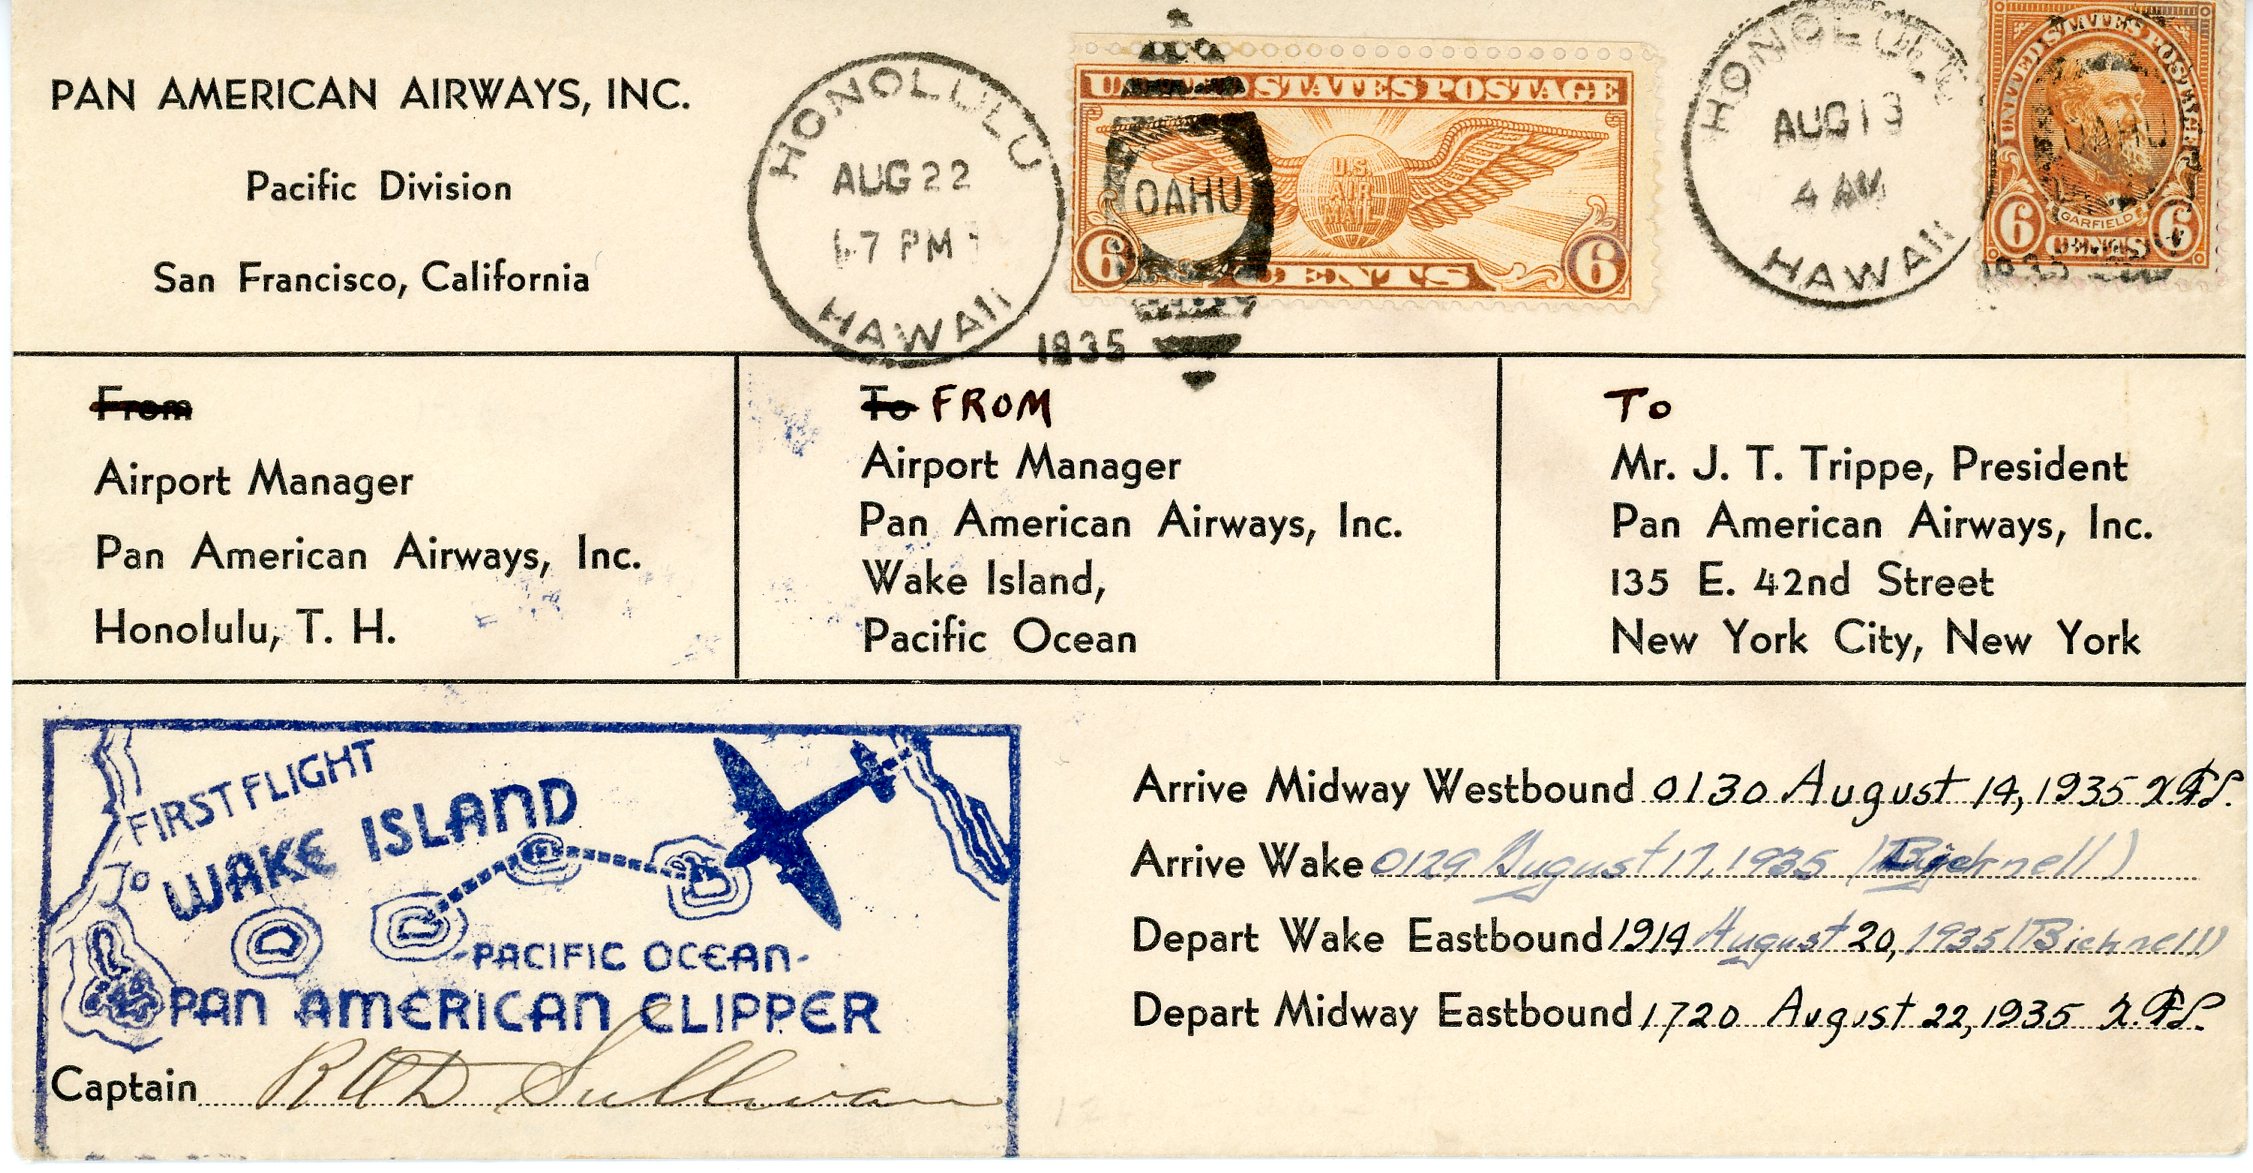 PAN AMERICAN AIRWAYS, INC.
Pacific Division
San Francisco, California
HONOLULU
AUG 22
7 PM
HAWAII
1935
OAHU
UNITED STATES POSTAGE
U.S.
AIR
MAIL
6 CENTS 6
HONOLULU
AUG 13
4 AM
HAWAII
1935
UNITED STATES POSTAGE
OAHU
GARFIELD
6 CENTS 6
From
Airport Manager
Pan American Airways, Inc.
Honolulu, T. H.
To FROM
Airport Manager
Pan American Airways, Inc.
Wake Island,
Pacific Ocean
To
Mr. J. T. Trippe, President
Pan American Airways, Inc.
135 E. 42nd Street
New York City, New York
FIRST FLIGHT
TO
WAKE ISLAND
-PACIFIC OCEAN-
PAN AMERICAN CLIPPER
Captain R O D Sullivan
Arrive Midway Westbound 0130 August 14, 1935
Arrive Wake 0129 August 17, 1935 (Bicknell)
Depart Wake Eastbound 1914 August 20, 1935 (Bicknell)
Depart Midway Eastbound 1720 August 22, 1935